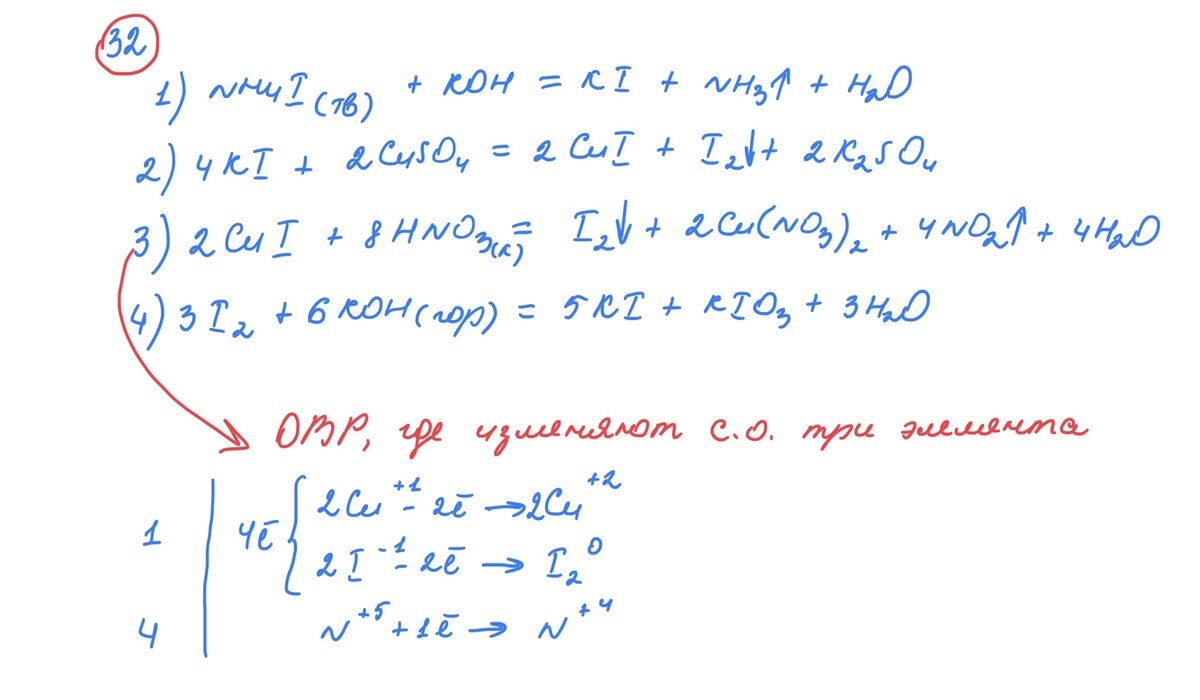 32
1) NH4I(тв) + KOH = KI + NH3↑ + H2O
2) 4KI + 2CuSO4 = 2CuI + I2↓ + 2K2SO4
3) 2CuI + 8HNO3(к) = I2↓ + 2Cu(NO3)2 + 4NO2↑ + 4H2O
4) 3I2 + 6KOH(гор) = 5KI + KIO3 + 3H2O
ОВР, где изменяют с.о. три элемента
2Cu+1 - 2ē → 2Cu+2
1 | 4ē {
2I-1 - 2ē → I2 0
4 | N+5 + 1ē → N+4